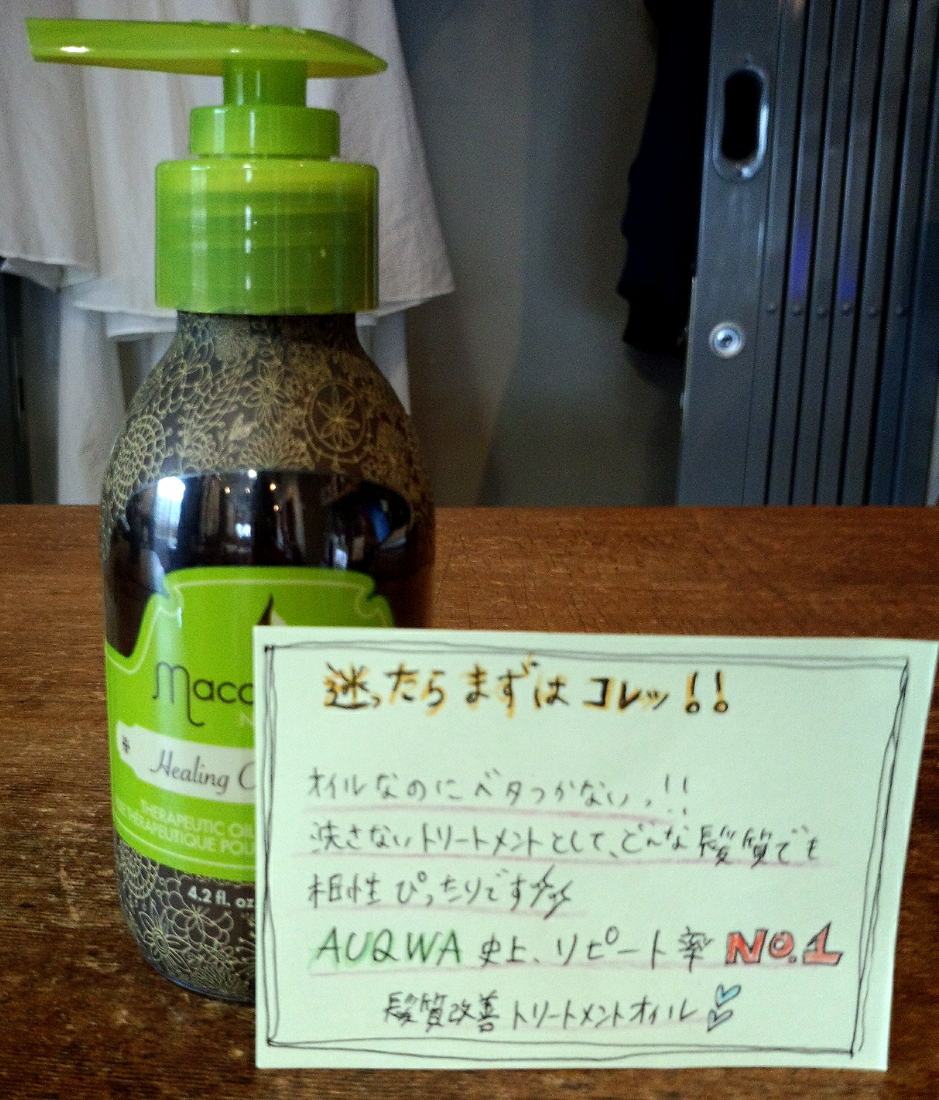 Maca
Healing O
THERAPEUTIC OIL
THERAPEUTIQUE POU
4.2 fl. oz
迷ったらまずはコレッ!!
オイルなのにベタつかない。!!
流さないトリートメントとして、どんな髪質でも
相性ぴったりです
AUQWA 史上、リピート率 NO.1
髪質改善トリートメントオイル